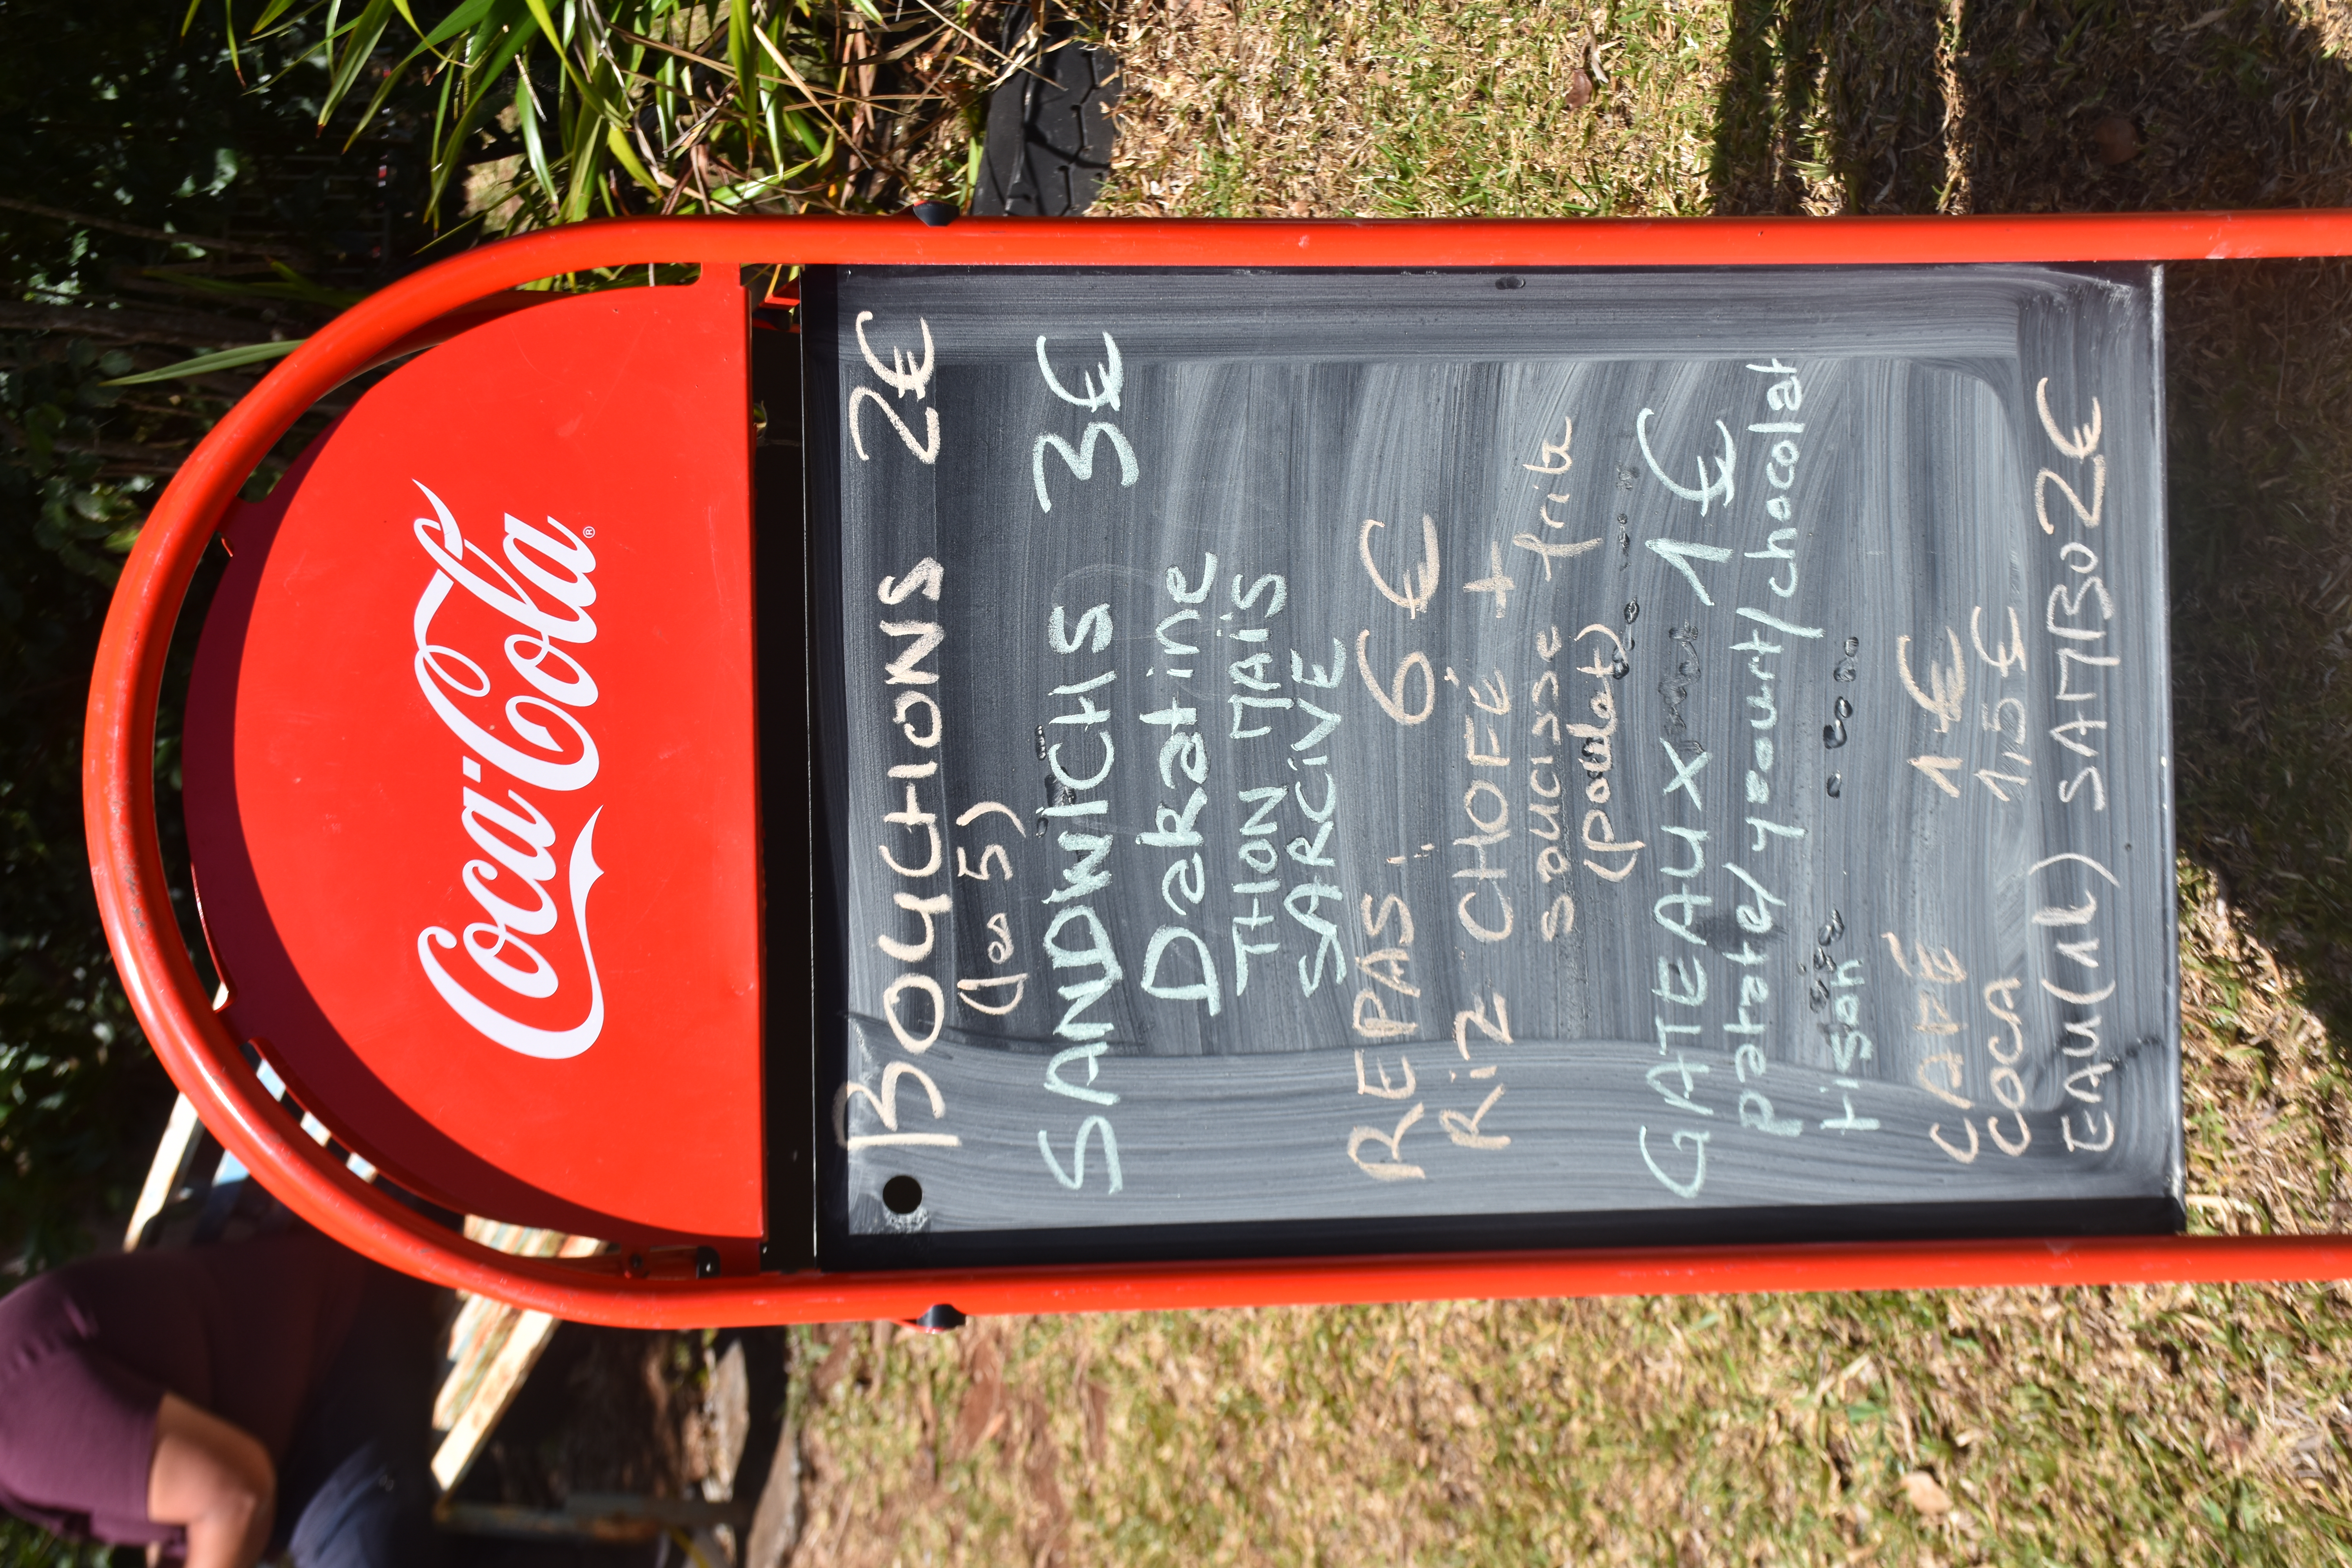 Coca-Cola®
BOUCHONS 2€
(les 5)
SANDWICHS 3€
Dakatine
THON MAIS
SARCIVE
REPAS: 6€
RiZ CHOFÉ +
saucisse frite
(poulet)
GATEAUX 1€
patate/yaourt/chocolat
tison
CAFÉ 1€
COCA 1,5€
EAU(1L) SAMBO 2€